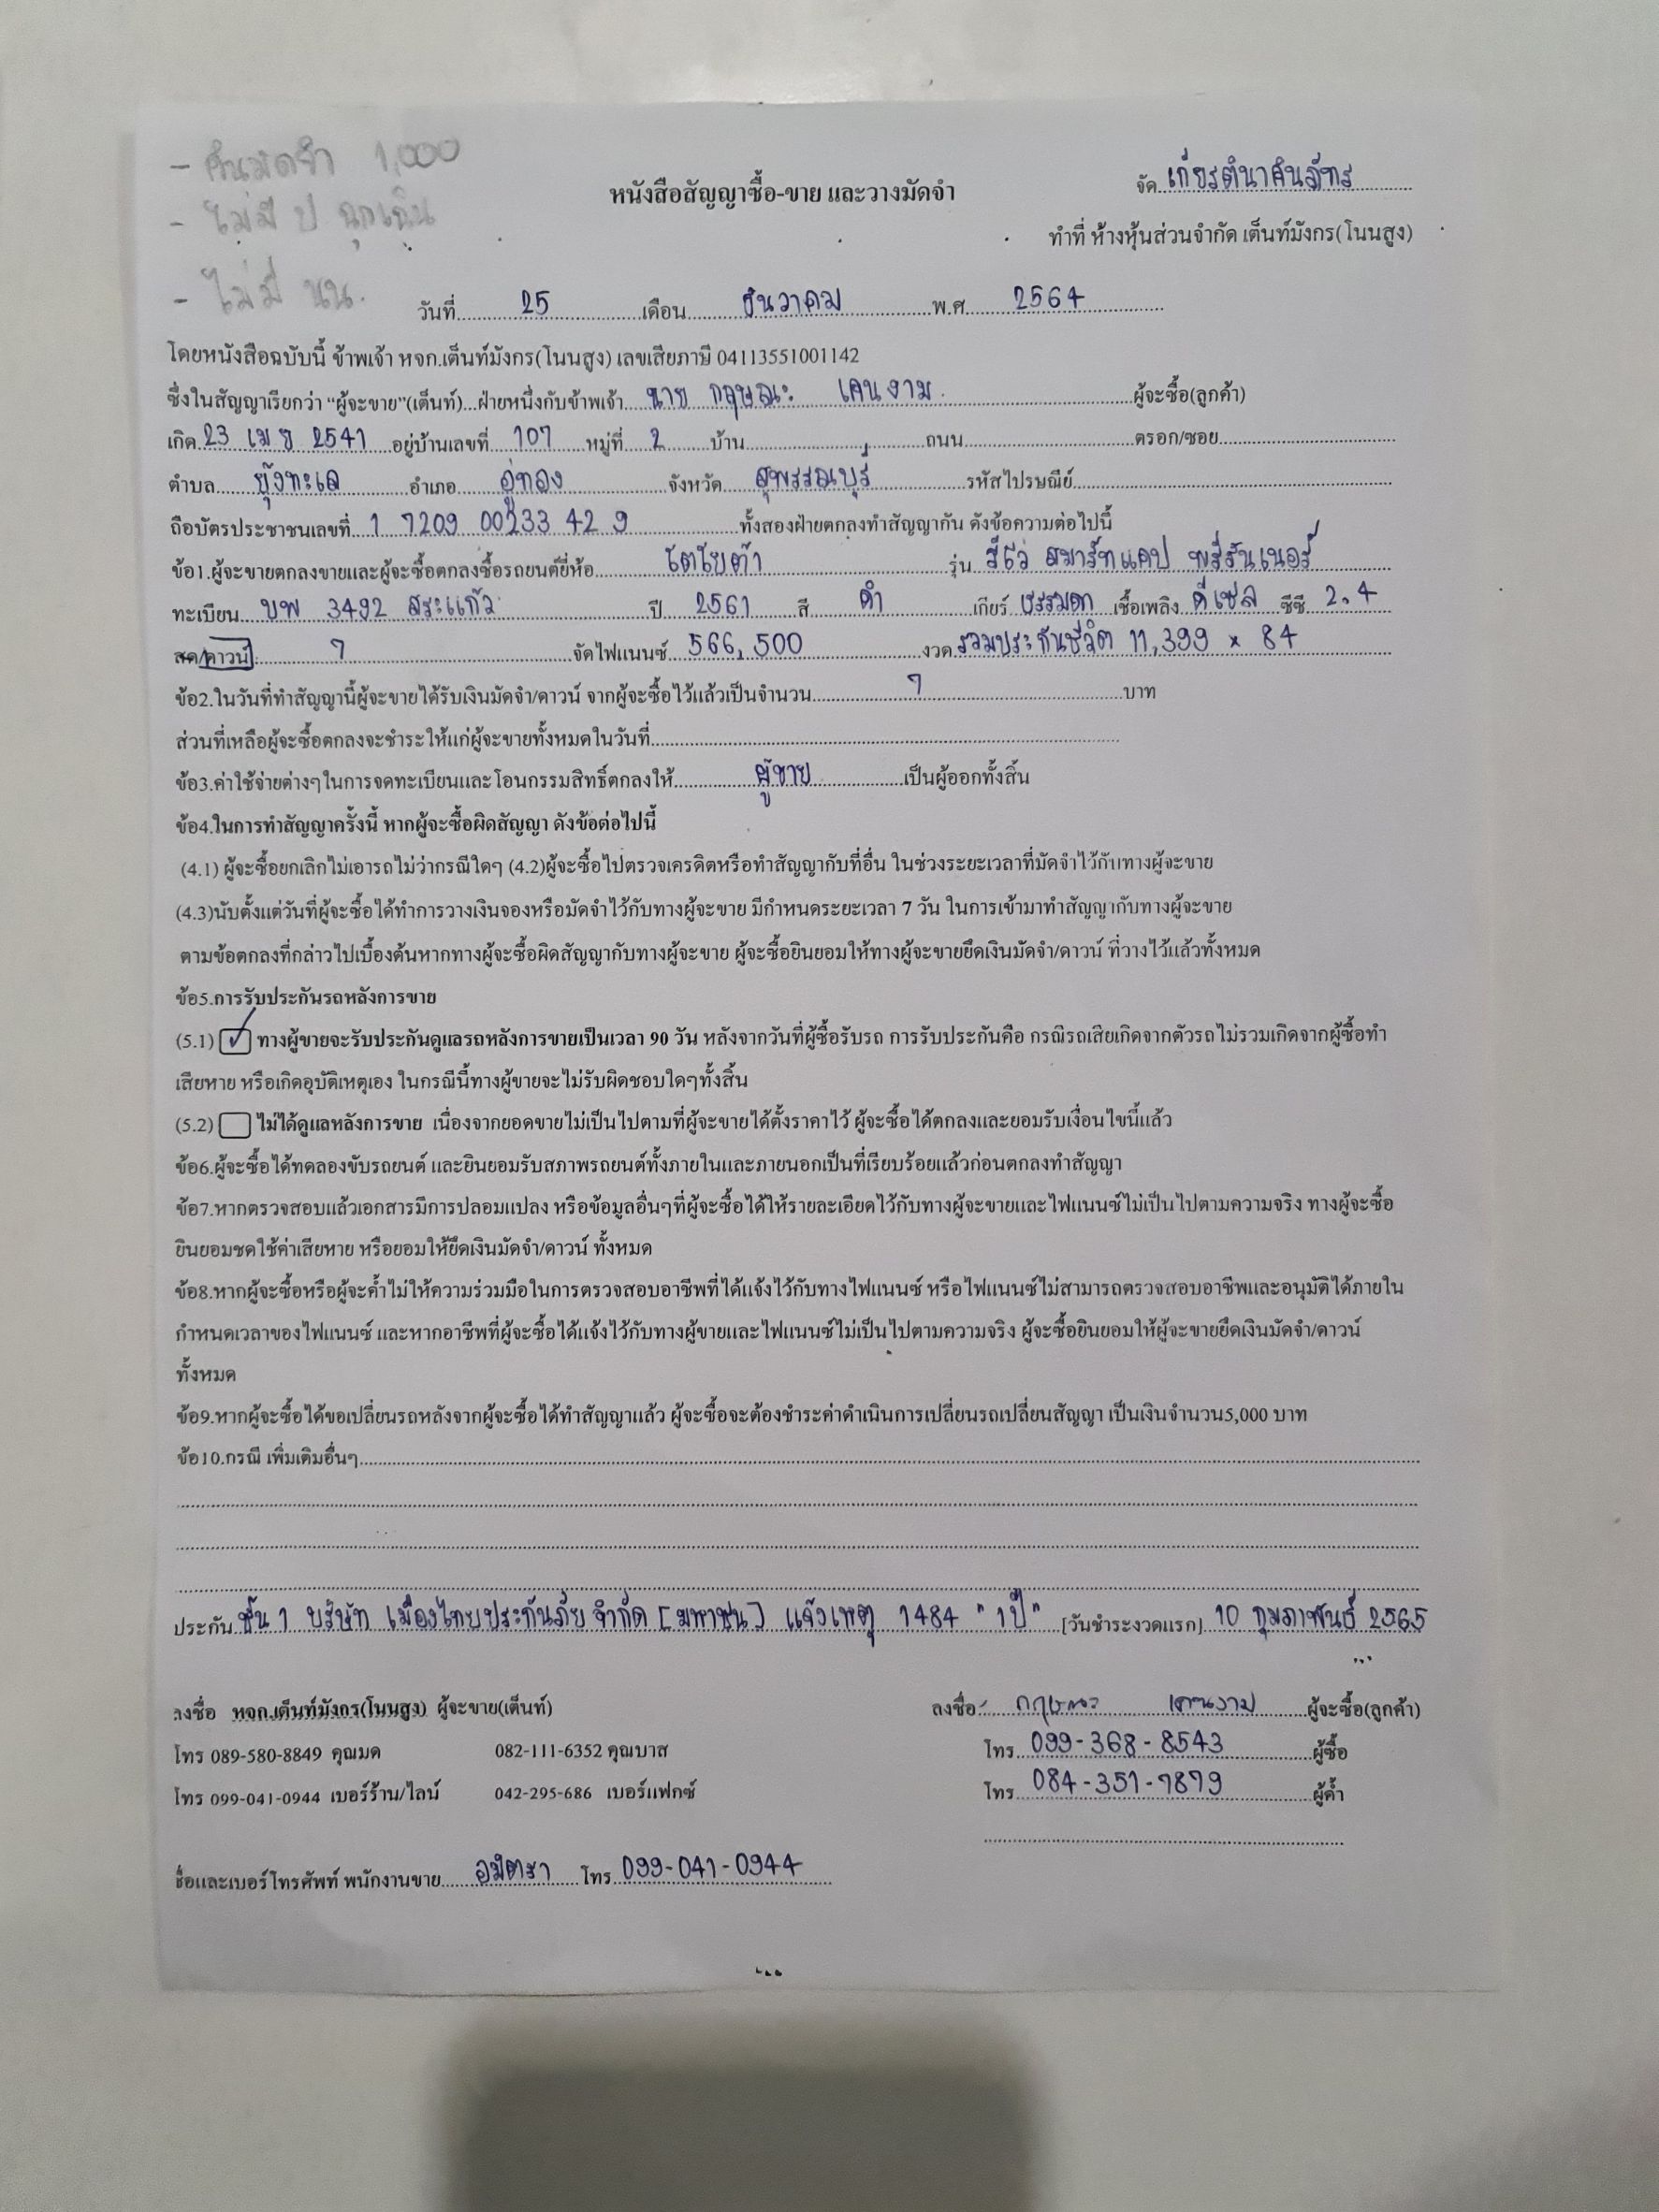 - คืนมัดจำ 1,000
- ไม่มี ป ฉุกเฉิน
- ไม่มี นน.
จัด เกียรตินาคินภัทร
หนังสือสัญญาซื้อ-ขาย และวางมัดจำ
ทำที่ ห้างหุ้นส่วนจำกัด เต็นท์มังกร(โนนสูง)
วันที่ 25 เดือน ธันวาคม พ.ศ. 2564
โดยหนังสือฉบับนี้ ข้าพเจ้า หจก.เต็นท์มังกร(โนนสูง) เลขเสียภาษี 04113551001142
ซึ่งในสัญญาเรียกว่า “ผู้จะขาย”(เต็นท์)...ฝ่ายหนึ่งกับข้าพเจ้า นาย กฤษณะ เคนงาม ผู้จะซื้อ(ลูกค้า)
เกิด 23 เม ย 2541 อยู่บ้านเลขที่ 107 หมู่ที่ 2 บ้าน ถนน ตรอก/ซอย
ตำบล ยุ้งทะเล อำเภอ อู่ทอง จังหวัด สุพรรณบุรี รหัสไปรษณีย์
ถือบัตรประชาชนเลขที่ 1 7209 00233 42 9 ทั้งสองฝ่ายตกลงทำสัญญากัน ดังข้อความต่อไปนี้
ข้อ1.ผู้จะขายตกลงขายและผู้จะซื้อตกลงซื้อรถยนต์ยี่ห้อ โตโยต้า รุ่น รีโว่ สมาร์ทแคป พรีรันเนอร์
ทะเบียน บพ 3492 สระแก้ว ปี 2561 สี ดำ เกียร์ ธรรมดา เชื้อเพลิง ดีเซล ซีซี 2.4
สด/ดาวน์ 7 จัดไฟแนนซ์ 566,500 งวด รวมประกันชีวิต 11,399 × 84
ข้อ2.ในวันที่ทำสัญญานี้ผู้จะขายได้รับเงินมัดจำ/ดาวน์ จากผู้จะซื้อไว้แล้วเป็นจำนวน 7 บาท
ส่วนที่เหลือผู้จะซื้อตกลงจะชำระให้แก่ผู้จะขายทั้งหมดในวันที่
ข้อ3.ค่าใช้จ่ายต่างๆในการจดทะเบียนและโอนกรรมสิทธิ์ตกลงให้ ผู้ขาย เป็นผู้ออกทั้งสิ้น
ข้อ4.ในการทำสัญญาครั้งนี้ หากผู้จะซื้อผิดสัญญา ดังข้อต่อไปนี้
(4.1) ผู้จะซื้อยกเลิกไม่เอารถไม่ว่ากรณีใดๆ (4.2)ผู้จะซื้อไปตรวจเครดิตหรือทำสัญญากับที่อื่น ในช่วงระยะเวลาที่มัดจำไว้กับทางผู้จะขาย
(4.3)นับตั้งแต่วันที่ผู้จะซื้อได้ทำการวางเงินจองหรือมัดจำไว้กับทางผู้จะขาย มีกำหนดระยะเวลา 7 วัน ในการเข้ามาทำสัญญากับทางผู้จะขาย
ตามข้อตกลงที่กล่าวไปเบื้องต้นหากทางผู้จะซื้อผิดสัญญากับทางผู้จะขาย ผู้จะซื้อยินยอมให้ทางผู้จะขายยึดเงินมัดจำ/ดาวน์ ที่วางไว้แล้วทั้งหมด
ข้อ5.การรับประกันรถหลังการขาย
(5.1) ✓ ทางผู้ขายจะรับประกันดูแลรถหลังการขายเป็นเวลา 90 วัน หลังจากวันที่ผู้ซื้อรับรถ การรับประกันคือ กรณีรถเสียเกิดจากตัวรถไม่รวมเกิดจากผู้ซื้อทำ
เสียหาย หรือเกิดอุบัติเหตุเอง ในกรณีนี้ทางผู้ขายจะไม่รับผิดชอบใดๆทั้งสิ้น
(5.2) ไม่ได้ดูแลหลังการขาย เนื่องจากยอดขายไม่เป็นไปตามที่ผู้จะขายได้ตั้งราคาไว้ ผู้จะซื้อได้ตกลงและยอมรับเงื่อนไขนี้แล้ว
ข้อ6.ผู้จะซื้อได้ทดลองขับรถยนต์ และยินยอมรับสภาพรถยนต์ทั้งภายในและภายนอกเป็นที่เรียบร้อยแล้วก่อนตกลงทำสัญญา
ข้อ7.หากตรวจสอบแล้วเอกสารมีการปลอมแปลง หรือข้อมูลอื่นๆที่ผู้จะซื้อได้ให้รายละเอียดไว้กับทางผู้จะขายและไฟแนนซ์ไม่เป็นไปตามความจริง ทางผู้จะซื้อ
ยินยอมชดใช้ค่าเสียหาย หรือยอมให้ยึดเงินมัดจำ/ดาวน์ ทั้งหมด
ข้อ8.หากผู้จะซื้อหรือผู้จะค้ำไม่ให้ความร่วมมือในการตรวจสอบอาชีพที่ได้แจ้งไว้กับทางไฟแนนซ์ หรือไฟแนนซ์ไม่สามารถตรวจสอบอาชีพและอนุมัติได้ภายใน
กำหนดเวลาของไฟแนนซ์ และหากอาชีพที่ผู้จะซื้อได้แจ้งไว้กับทางผู้ขายและไฟแนนซ์ไม่เป็นไปตามความจริง ผู้จะซื้อยินยอมให้ผู้จะขายยึดเงินมัดจำ/ดาวน์
ทั้งหมด
ข้อ9.หากผู้จะซื้อได้ขอเปลี่ยนรถหลังจากผู้จะซื้อได้ทำสัญญาแล้ว ผู้จะซื้อจะต้องชำระค่าดำเนินการเปลี่ยนรถเปลี่ยนสัญญา เป็นเงินจำนวน5,000 บาท
ข้อ10.กรณี เพิ่มเติมอื่นๆ
ประกัน ชั้น 1 บริษัท เมืองไทยประกันภัย จำกัด [มหาชน] แจ้งเหตุ 1484 " 1 ปี " [วันชำระงวดแรก] 10 กุมภาพันธ์ 2565
ลงชื่อ หจก.เต็นท์มังกร(โนนสูง) ผู้จะขาย(เต็นท์)
ลงชื่อ กฤษณะ เคนงาม ผู้จะซื้อ(ลูกค้า)
โทร 089-580-8849 คุณมด 082-111-6352 คุณบาส
โทร 099-368-8543 ผู้ซื้อ
โทร 099-041-0944 เบอร์ร้าน/ไลน์ 042-295-686 เบอร์แฟกซ์
โทร 084-351-7879 ผู้ค้ำ
ชื่อและเบอร์โทรศัพท์ พนักงานขาย อมิตรา โทร 099-041-0944